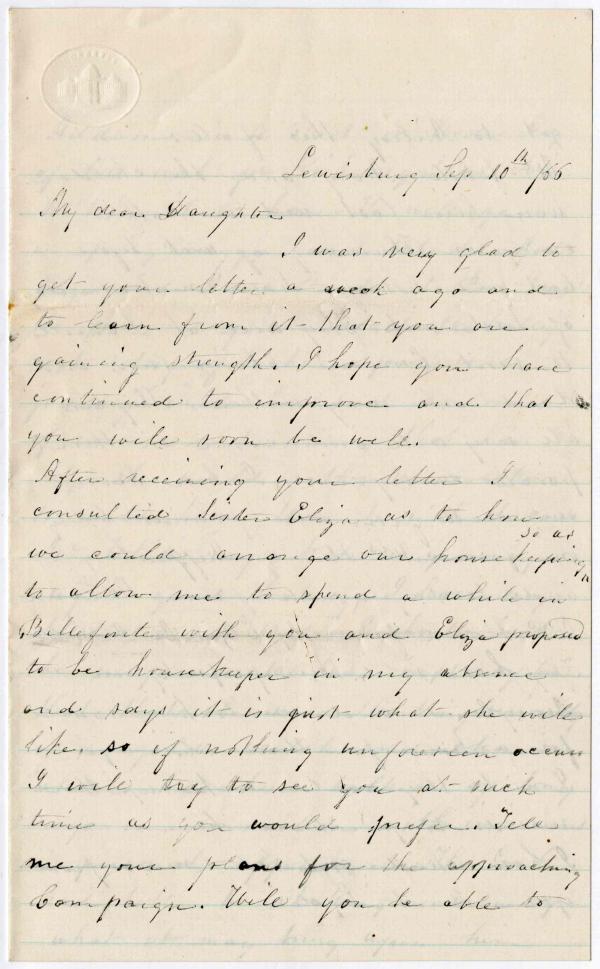 Lewisburg Sep 10th /66
My dear Daughter
I was very glad to
get your letter a week ago and
to learn from it that you are
gaining strength. I hope you have
continued to improve and that
you will soon be well.
After receiving your letter I
consulted Sister Eliza as to how
we could arrange our housekeeping so as
to allow me to spend a while in
Bellefonte with you and Eliza proposed
to be housekeeper in my absence
and says it is just what she will
like. so if nothing unforeseen occurs
I will try to see you at such
time as you would prefer. Tell
me your plans for the approaching
Campaign. Will you be able to